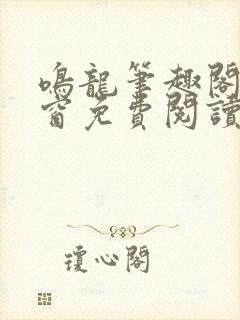 鳴龍筆趣閣
窗免費閱讀
瓊心閣